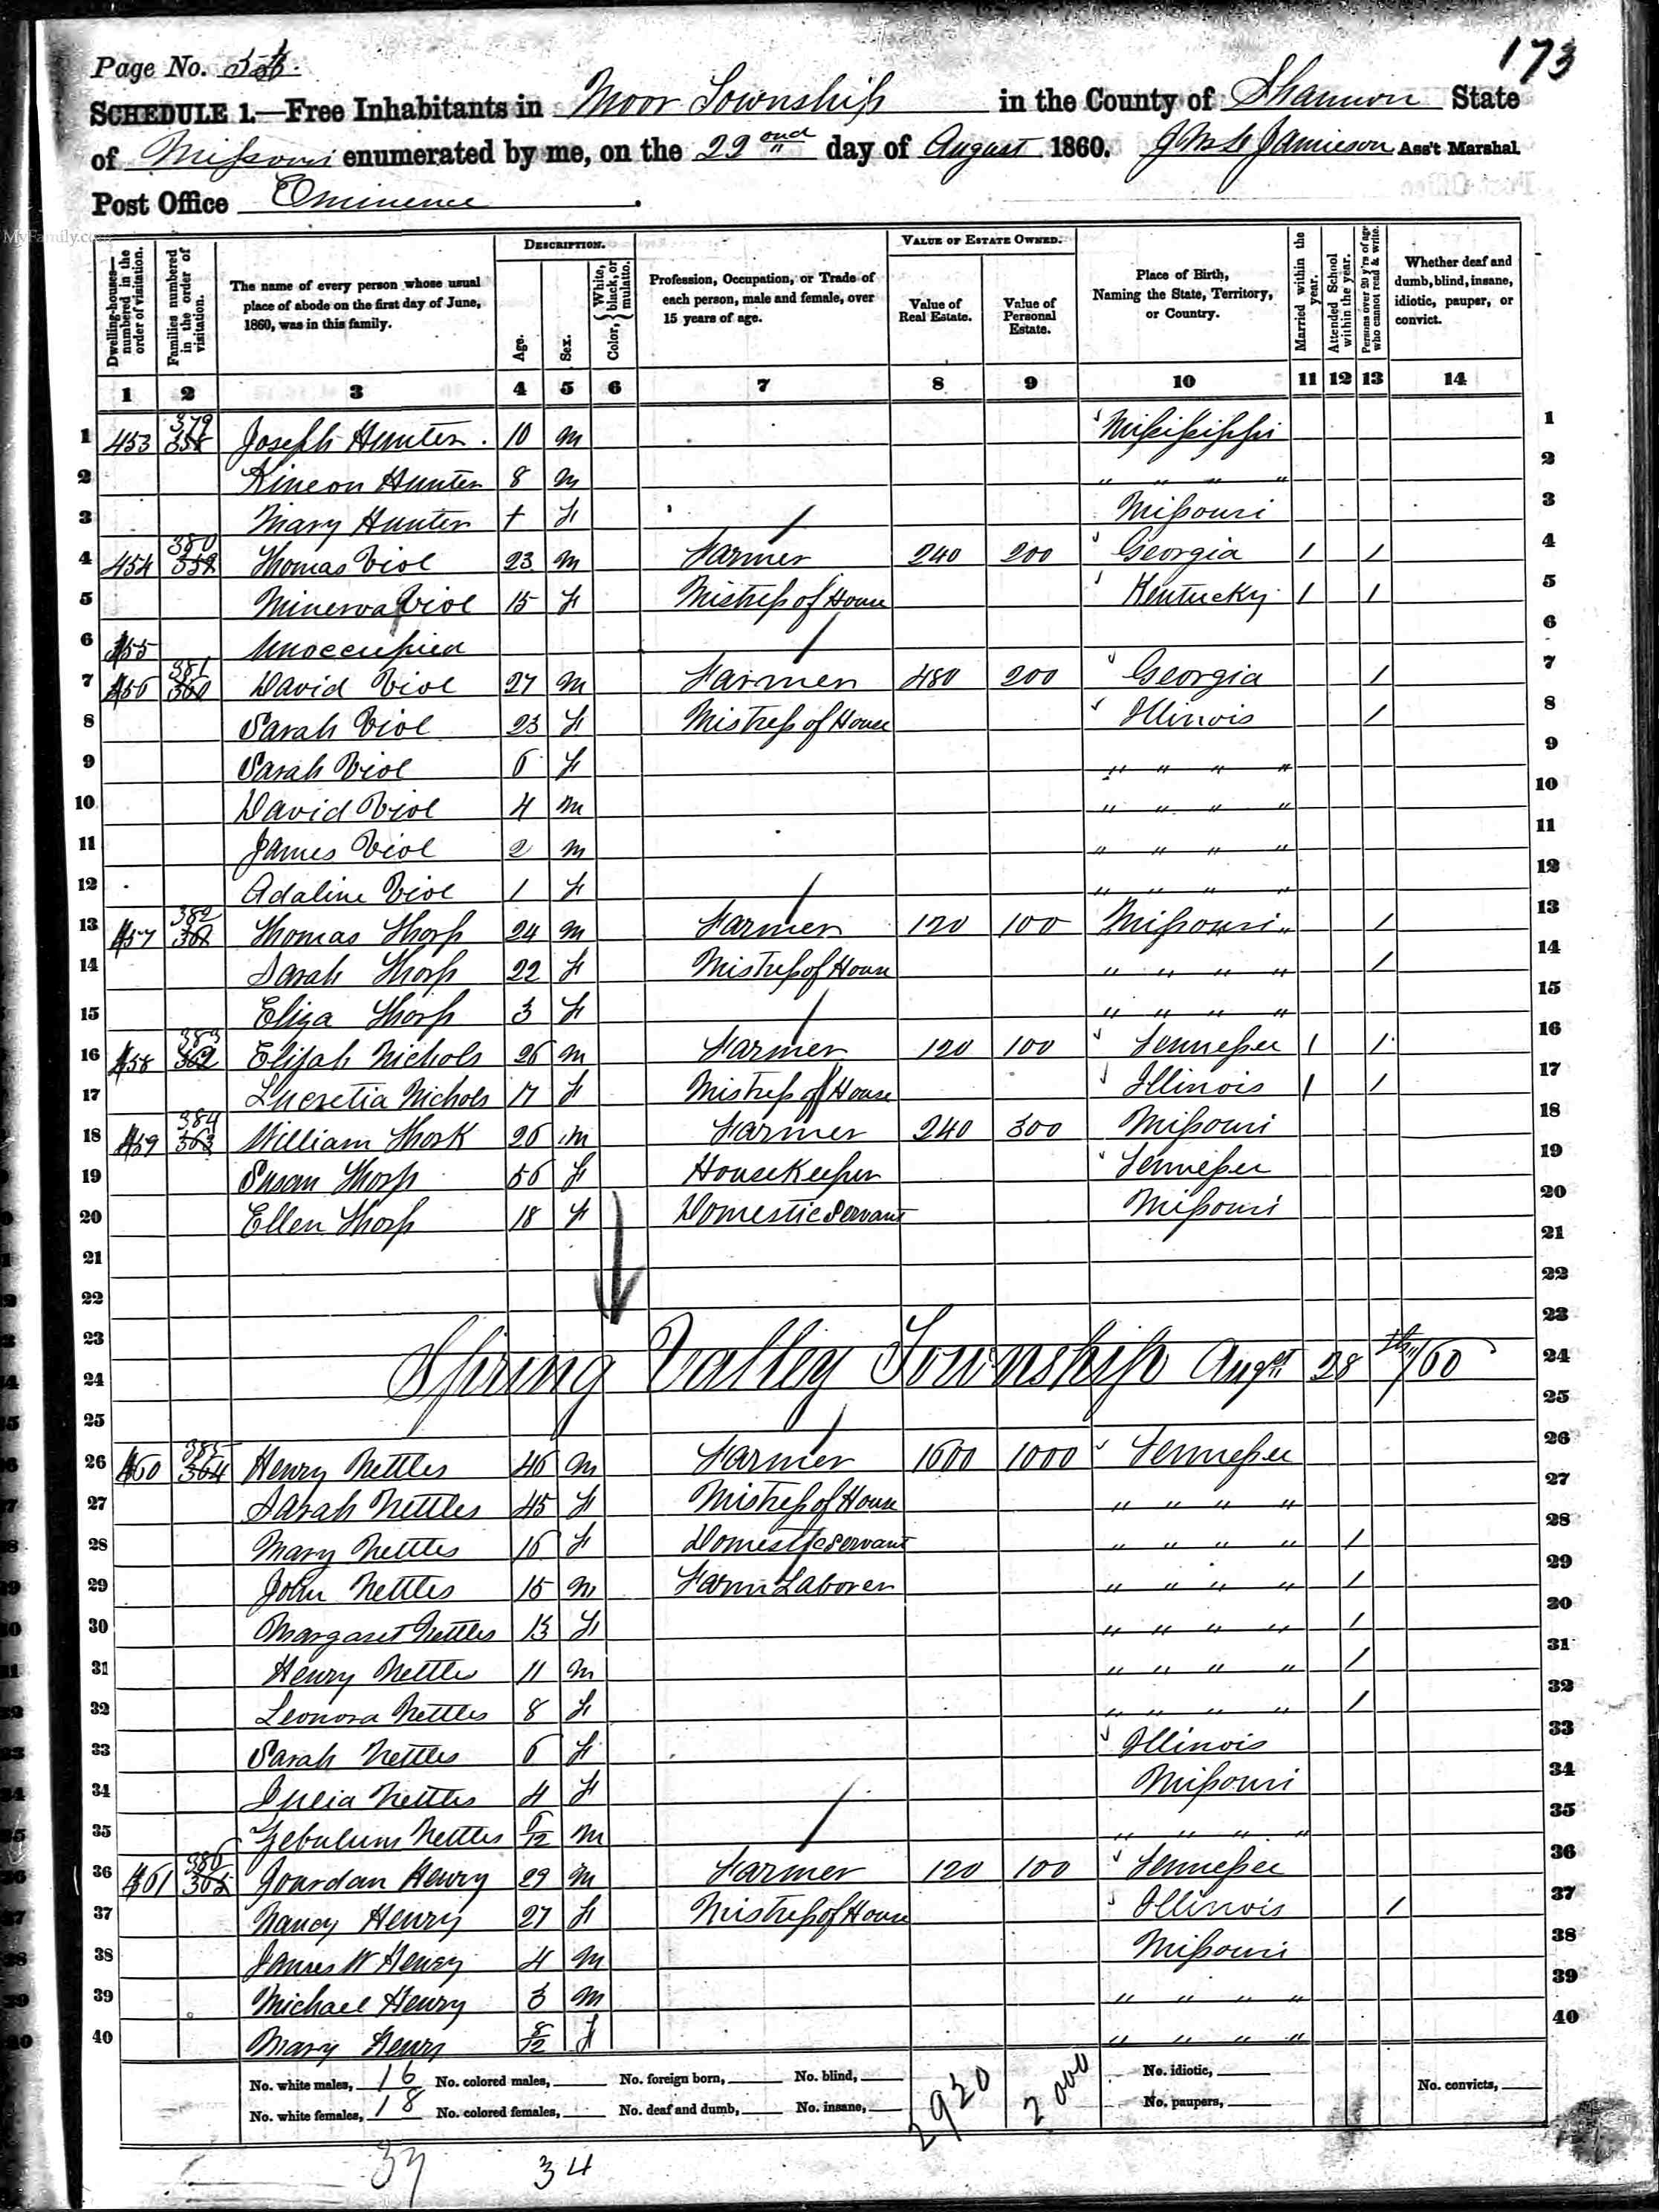 173
Page No.
SCHEDULE 1.—Free Inhabitants in Moor Township in the County of Shannon State
of Missouri enumerated by me, on the 22ond day of August 1860. Jamieson Ass't Marshal.
Post Office Eminence.
MyFamily.com
Dwelling-houses—numbered in the order of visitation.
Families numbered in the order of visitation.
The name of every person whose usual place of abode on the first day of June, 1860, was in this family.
DESCRIPTION.
Age.
Sex.
Color, { White, black, or mulatto.
Profession, Occupation, or Trade of each person, male and female, over 15 years of age.
VALUE OF ESTATE OWNED.
Value of Real Estate.
Value of Personal Estate.
Place of Birth, Naming the State, Territory, or Country.
Married within the year.
Attended School within the year.
Persons over 20 y'rs of age who cannot read & write.
Whether deaf and dumb, blind, insane, idiotic, pauper, or convict.
1 2 3 4 5 6 7 8 9 10 11 12 13 14
1 453 379 358 Joseph Hunter. 10 m Mississippi 1
2 Kineon Hunter 8 m " " " " 2
3 Mary Hunter f Missouri 3
4 454 380 Thomas Viol 23 m Farmer 240 200 Georgia / / 4
5 Minerva Viol 15 f Mistress of House Kentucky / / 5
6 455 Unoccupied 6
7 456 381 360 David Viol 27 m Farmer 480 200 Georgia / 7
8 Sarah Viol 23 f Mistress of House Illinois / 8
9 Sarah Viol 6 f " " " " 9
10 David Viol 4 m " " " " 10
11 James Viol 2 m " " " " 11
12 Adaline Viol 1 f " " " " 12
13 457 382 361 Thomas Thorp 24 m Farmer 120 100 Missouri / 13
14 Sarah Thorp 22 f Mistress of House " " " " / 14
15 Eliza Thorp 3 f " " " " 15
16 458 383 362 Elijah Nichols 26 m Farmer 120 100 Tennessee / / 16
17 Lucretia Nichols 17 f Mistress of House Illinois / / 17
18 459 384 363 William Thork 26 m Farmer 240 300 Missouri 18
19 Susan Thorp 56 f Housekeeper Tennessee 19
20 Ellen Thorp 18 f Domestic Servant Missouri 20
21 21
22 22
23 23
24 Spring Valley Township Augst 28th/60 24
25 25
26 460 385 364 Henry Nettles 46 m Farmer 1600 1000 Tennessee 26
27 Sarah Nettles 45 f Mistress of House " " " " 27
28 Mary Nettles 16 f Domestic Servant " " " " / 28
29 John Nettles 15 m Farm Laborer " " " " / 29
30 Margaret Nettles 13 f " " " " / 30
31 Henry Nettles 11 m " " " " / 31
32 Leonora Nettles 8 f " " " " / 32
33 Sarah Nettles 6 f Illinois 33
34 Julia Nettles 4 f Missouri 34
35 Zebulum Nettles 6/12 m " " " " 35
36 461 386 365 Jourdan Henry 29 m Farmer 120 100 Tennessee 36
37 Nancy Henry 27 f Mistress of House Illinois / 37
38 James W Henry 4 m Missouri 38
39 Michael Henry 3 m " " " " 39
40 Mary Henry f " " " " 40
No. white males, 16 No. colored males, No. foreign born, No. blind, 2920 2000 No. idiotic, No. convicts,
No. white females, 18 No. colored females, No. deaf and dumb, No. insane, No. paupers,
37 34